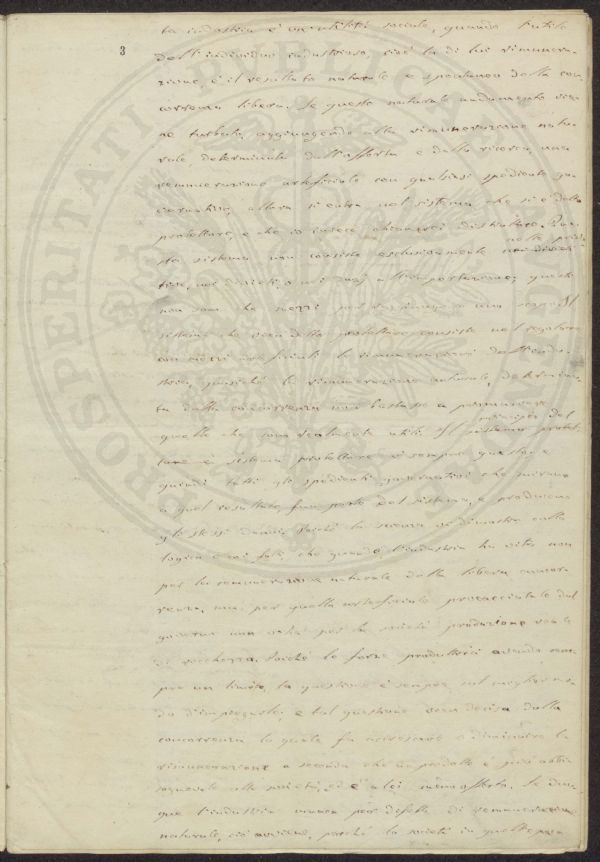 ta industria è un'utilità sociale, quando l'utile
3
dell'individuo industrioso, cioè la di lui rimunera-
zione, è il resultato naturale e spontaneo della con-
correnza libera. Se questo naturale andamento vie-
ne turbato, aggiungendo alla rimunerazione natu-
rale, determinata dall'offerta e dalla ricerca, una
remunerazione artificiale con qualsiasi spediente go-
vernativo, allora si entra nel sistema che si è detto
protettore, e che io invece chiamerei distruttore. Que-
sto sistema non consiste esclusivamente
nelle proi-
o nei dazj all'importazione; queste
non sono che mezzi per
sistema che vien detto protettore consiste nel regolare
con mezzi artificiali le rimunerazioni dell'indu-
stria, quasiché la rimunerazione naturale, determina-
ta dalla concorrenza non bastasse a promuovere
quelle che sono realmente utili. Il
principio del
sistema protettore è sempre questo; e
quindi tutti gli spedienti governativi che mirano
a quel resultato, fan parte del sistema, e producono
gli stessi danni. Poiché la scienza ne dimostra colla
logica e coi fatti, che quando l'industria ha vita non
per la remunerazione naturale della libera concor-
renza, ma per quella artificiale procacciatale dal
governo non v'è per la società produzione reale
di ricchezza. Poiché le forze produttrici avendo sem-
pre un limite, la questione è sempre sul miglior mo-
do d'impiegarle, e tal questione vien decisa dalla
concorrenza la quale fa accrescere o diminuire la
rimunerazione a seconda che un prodotto è più abbi-
sognevole alla società, cioè a lei meno offerto. Se dun-
que l'industria manca per difetto di remunerazione
naturale, ciò avviene, perché la società in quelle